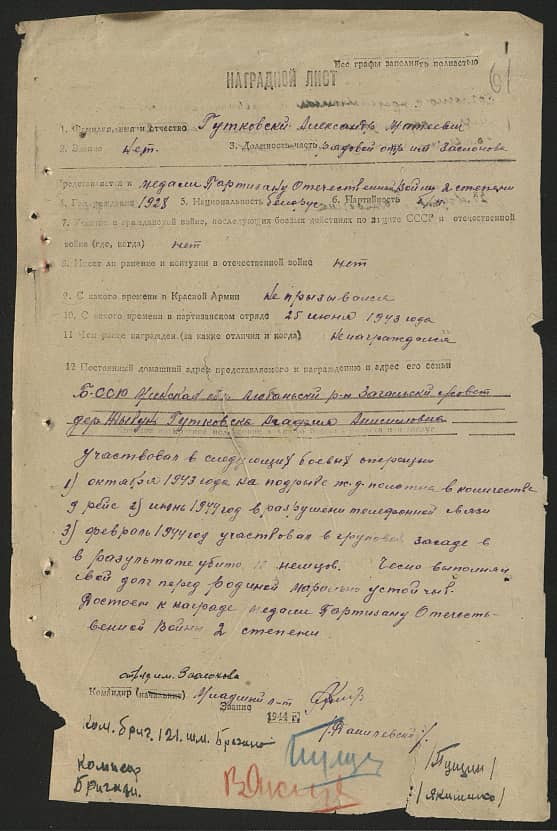 Все графы заполнять полностью
61
НАГРАДНОЙ ЛИСТ
1. Фамилия, имя и отчество Гутковски Александр Матвеевич
2. Звание нет. 3. Должность, часть рядовой отр. им Заслонова
Представляется к медали Партизану Отечественной Войны 2 степени
4. Год рождения 1928 5. Национальность белорус 6. Партийность
7. Участие в гражданской войне, последующих боевых действиях по защите СССР и отечественной
войне (где, когда) нет
8. Имеет ли ранение и контузии в отечественной войне нет
9. С какого времени в Красной Армии не призывался
10. С какого времени в партизанском отряде 25 июня 1943 года
11 Чем ранее награжден (за какие отличия и когда) ненаграждался
12 Постоянный домашний адрес представляемого к награждению и адрес его семьи
БССР Минская обл Любаньски р-н Загальски с/совет
дер. Жывун Гутковска Анисимовна
Участвовал в следующих боевых операции
1) октября 1943 года на подрыве ж.д. полотна в количестве
9 рейс 2) июне 1944 год в разрушени телефонной связи
3) февраль 1944 год участвовал в груповой засаде в
в результате убито немцов. Чесно выполнял
свой долг перед родиной морально устойчив.
Достоен к награде медали Партизану Отечест-
венной Войны 2 степени
отряд им. Заслонова
Командир (начальник) Младший л-т
Звание
1944 г.
/Даничевский/
Ком. бриг. 121. им. Брагина
/Пущин/
комисар
Бригады.
/Якименко/